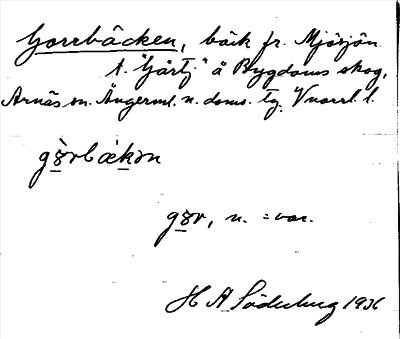 Gorrbäcken, bäck fr. Mjösjön
t. "Gårtj" å Bygdoms skog,
Arnäs sn. Ångerml. n. doms. tg. Vnorrl. l.
gòrbǽkən
gor, n. = var.
H A Söderberg 1936